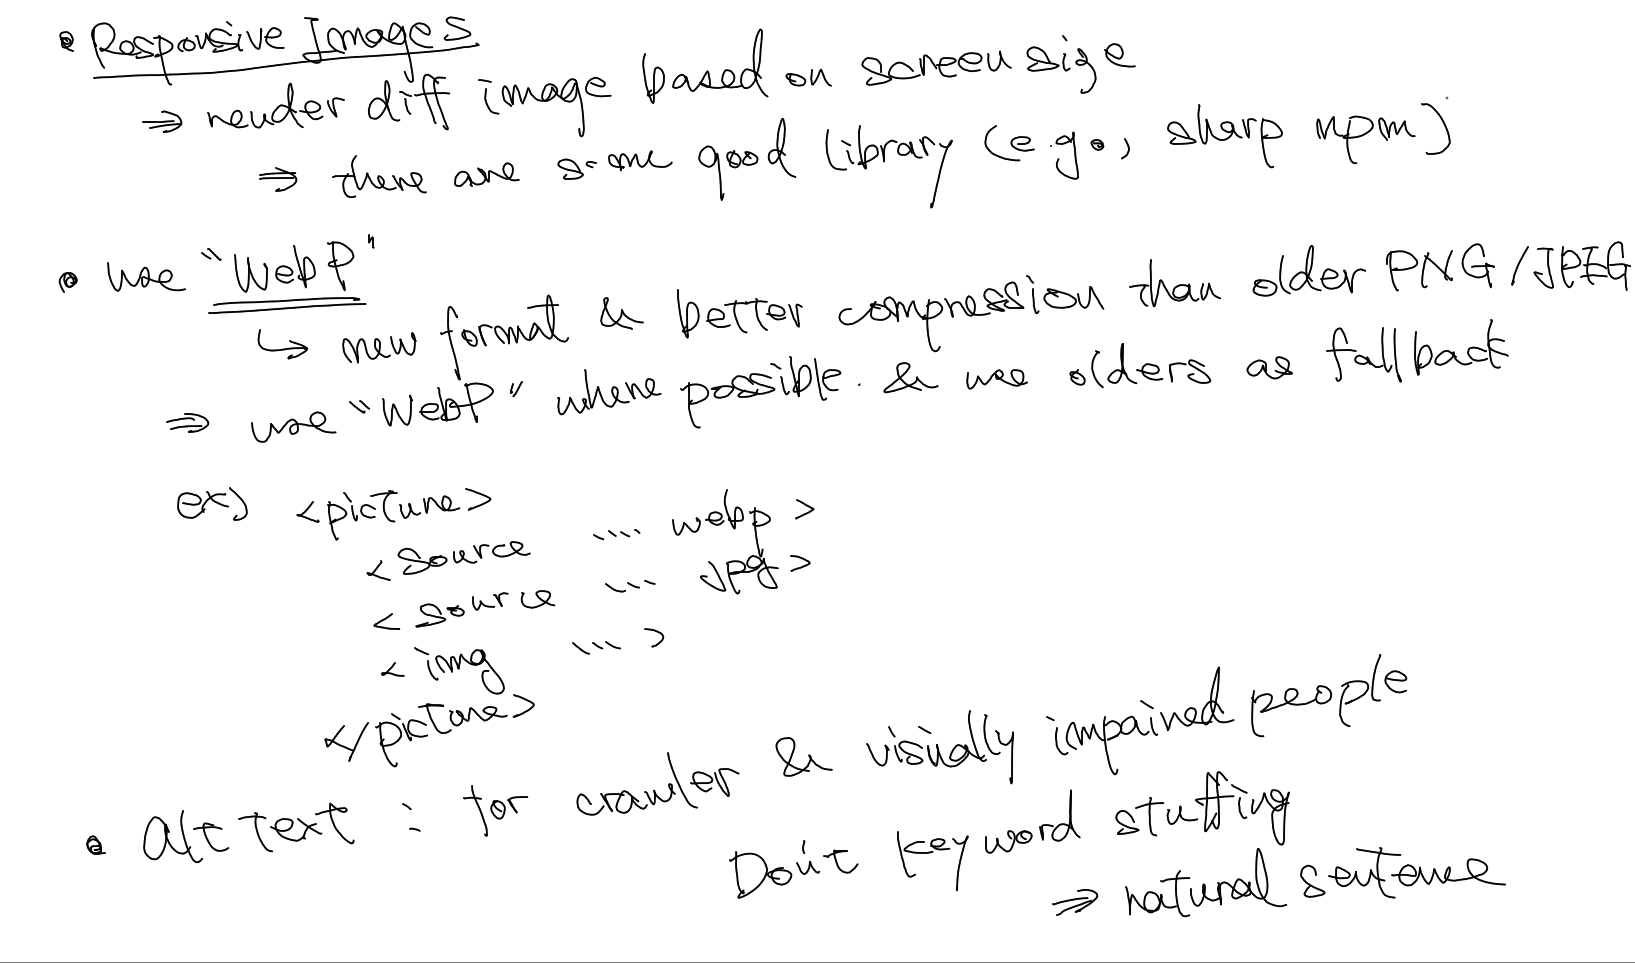 • Responsive Images
⇒ render diff image based on screen size
⇒ there are some good library (e.g., sharp npm)
• use "WebP"
↳ new format & better compression than older PNG/JPEG
⇒ use "WebP" where possible. & use olders as fallback
ex) <picture>
<source .... webp >
<source ... jpg>
<img ... >
</picture>
• alt text : for crawler & visually impaired people
Don't keyword stuffing
⇒ natural sentence